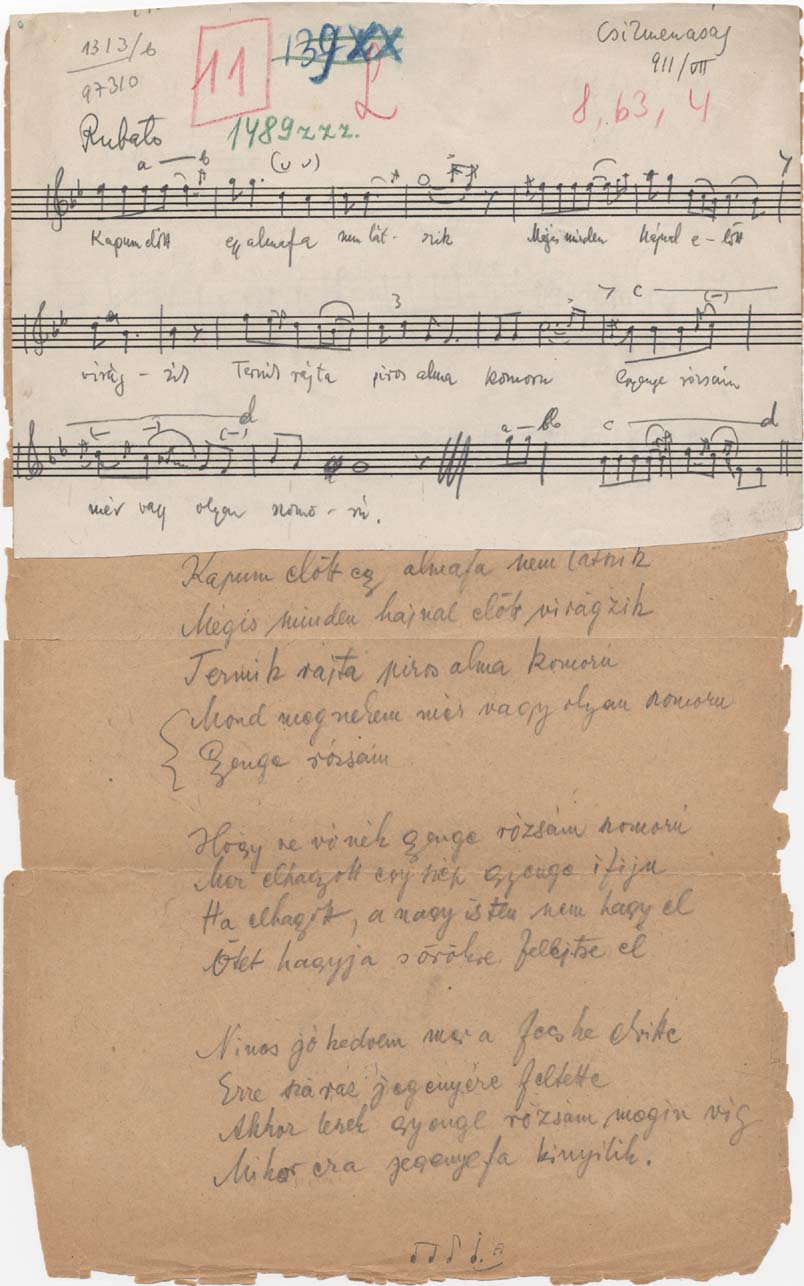 1313/b
97310
11
139
Csizmenaság
911/VII
8, b3, 4
1489zzz.
Rubato
a — b
Kapum előtt egy almafa nem lát - szik Mégis minden hajnal e - lőtt
3
c
virág - zik Termik rajta piros alma komoru Gyenge rózsám
d
a — b
c
d
mér vagy olyan szomo - rú.
Kapum előtt egy almafa nem látszik
Mégis minden hajnal előtt virágzik
Termik rajta piros alma komorú
Mond meg nekem mér vagy olyan szomoru
Gyenge rózsám
Hogy ne vónék gyenge rózsám szomorú
Mer elhagyott egy szép gyenge ifiju
Ha elhagyott, a nagy isten nem hagy el
Ötet hagyja örökre felejtse el
Nincs jó kedvem mer a fecske elvitte
Erre száraz jegenyére feltette
Akkor lesek gyenge rózsám megin víg
Mikor eza jegenyefa kinyílik.